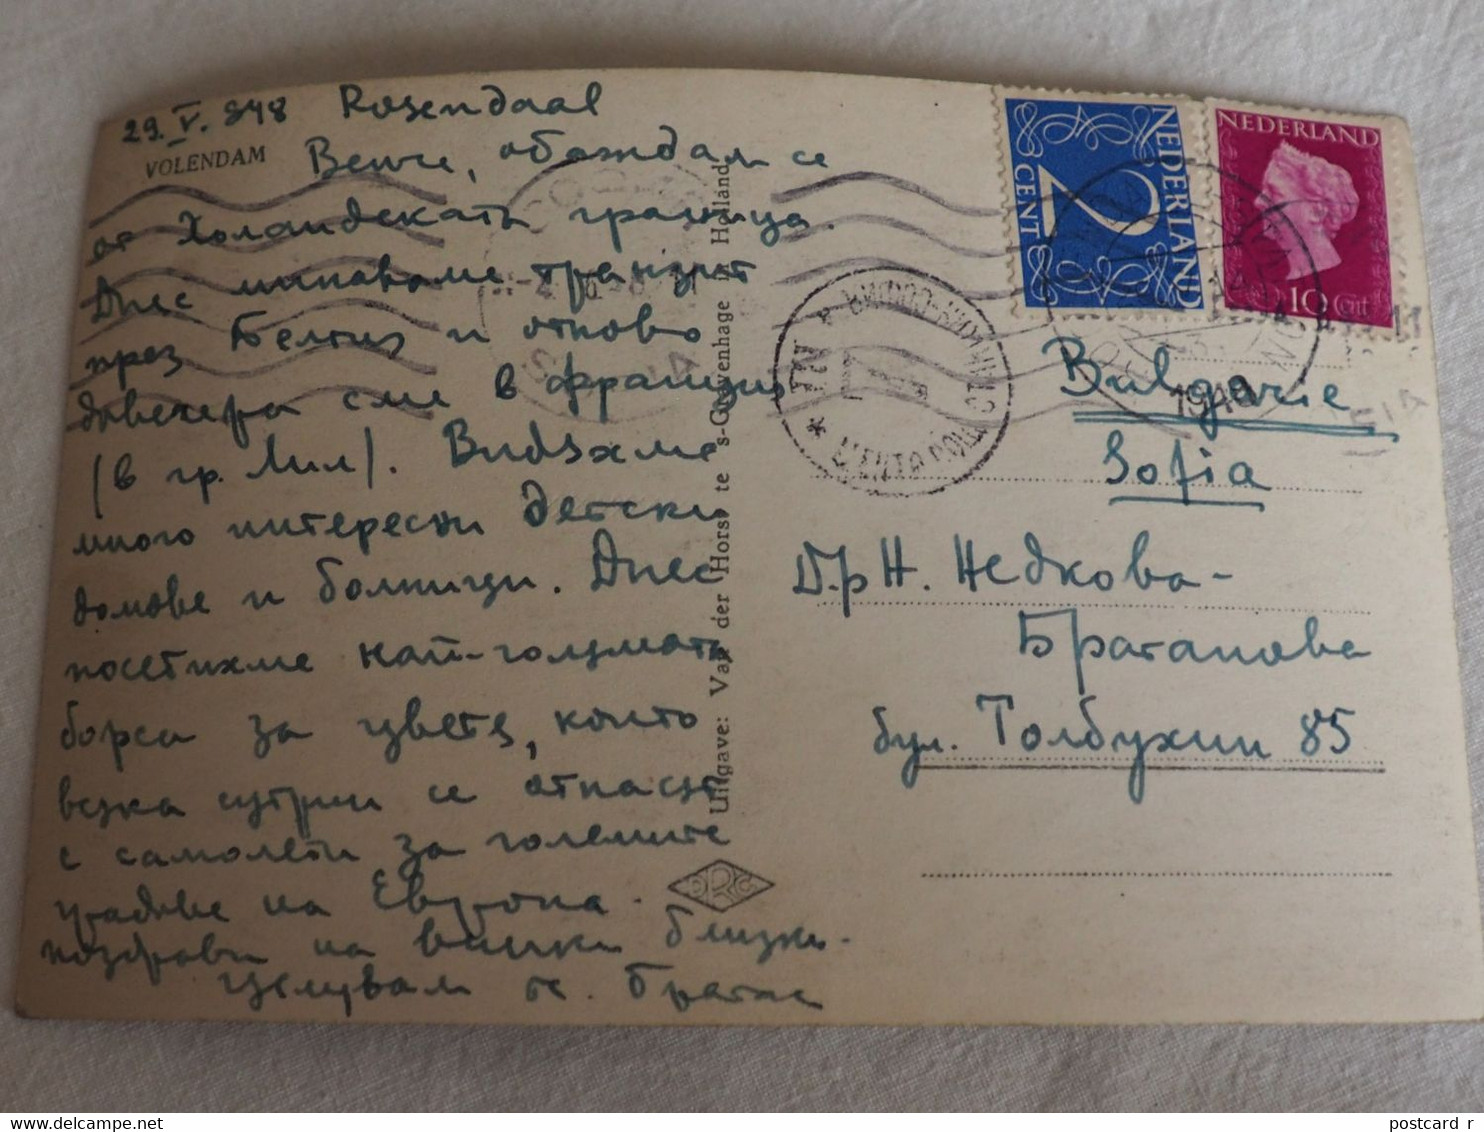 29.V.948 Rosendaal
VOLENDAM
Венче, обаждам се
от Холандската граница.
Днес минаваме транзит
през Белгия и отново
довечера сме в Франция
(в гр. Лил). Видяхме
много интересни детски
домове и болници. Днес
посетихме най-голямата
борса за цветя, които
всяка сутрин се отнасят
с самолети за големите
градове на Европа.
поздрави на всички близки.
Целувам те. Братан
Uitgave: Van der Horst te s-Gravenhage Holland
NEDERLAND
2
CENT
NEDERLAND
10 Cnt
1948
ЦЕНТР. ПОЩА
Bulgarie
Sofia
Д-р Н. Недкова-
Братанова
бул. Толбухин 85
postcard r